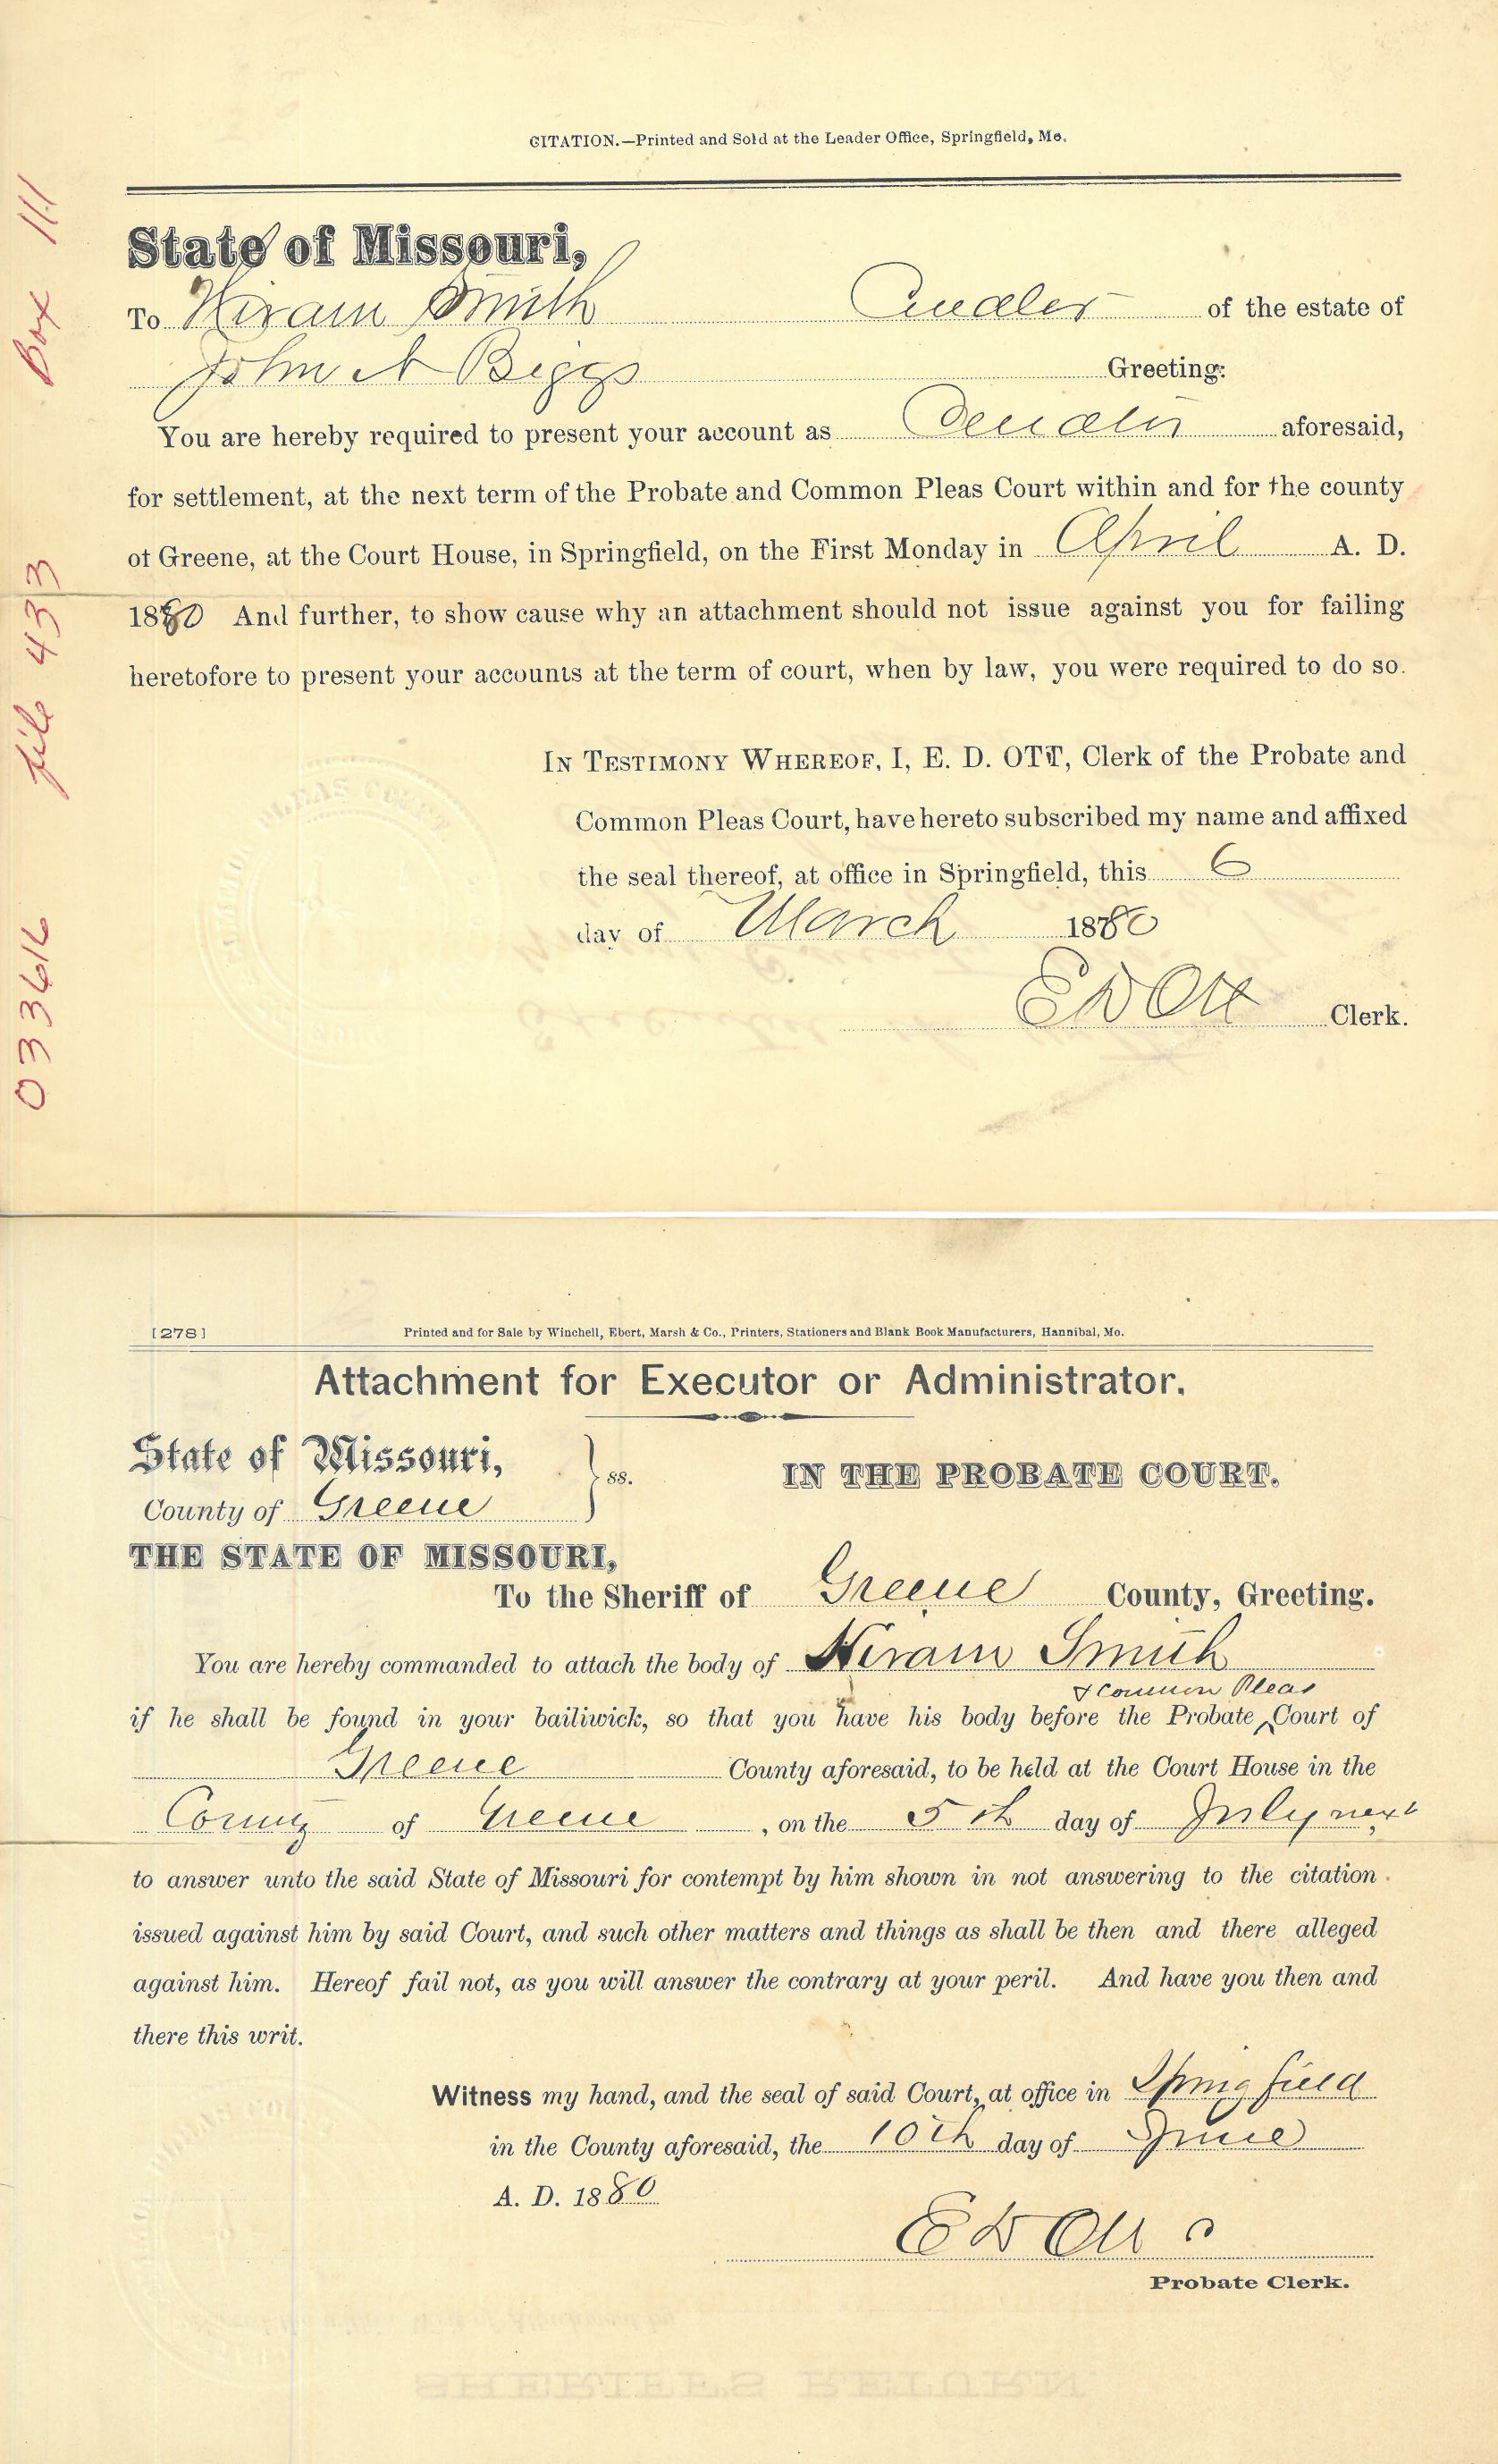 CITATION.—Printed and Sold at the Leader Office, Springfield, Mo.
State of Missouri,
To Hiram Smith of the estate of
John N Biggs Greeting:
You are hereby required to present your account as aforesaid,
for settlement, at the next term of the Probate and Common Pleas Court within and for the county
of Greene, at the Court House, in Springfield, on the First Monday in April A. D.
1880 And further, to show cause why an attachment should not issue against you for failing
heretofore to present your accounts at the term of court, when by law, you were required to do so.
IN TESTIMONY WHEREOF, I, E. D. OTT, Clerk of the Probate and
Common Pleas Court, have hereto subscribed my name and affixed
the seal thereof, at office in Springfield, this 6
day of March 1880
E D Ott Clerk.
033616 file 433 Box 111
[278] Printed and for Sale by Winchell, Ebert, Marsh & Co., Printers, Stationers and Blank Book Manufacturers, Hannibal, Mo.
Attachment for Executor or Administrator.
State of Missouri,
County of Greene } ss. IN THE PROBATE COURT.
THE STATE OF MISSOURI,
To the Sheriff of Greene County, Greeting.
You are hereby commanded to attach the body of Hiram Smith
& Common Pleas
if he shall be found in your bailiwick, so that you have his body before the Probate ‸ Court of
Greene County aforesaid, to be held at the Court House in the
County of Greene, on the 5th day of July next
to answer unto the said State of Missouri for contempt by him shown in not answering to the citation
issued against him by said Court, and such other matters and things as shall be then and there alleged
against him. Hereof fail not, as you will answer the contrary at your peril. And have you then and
there this writ.
Witness my hand, and the seal of said Court, at office in Springfield
in the County aforesaid, the 10th day of June
A. D. 1880
E D Ott
Probate Clerk.